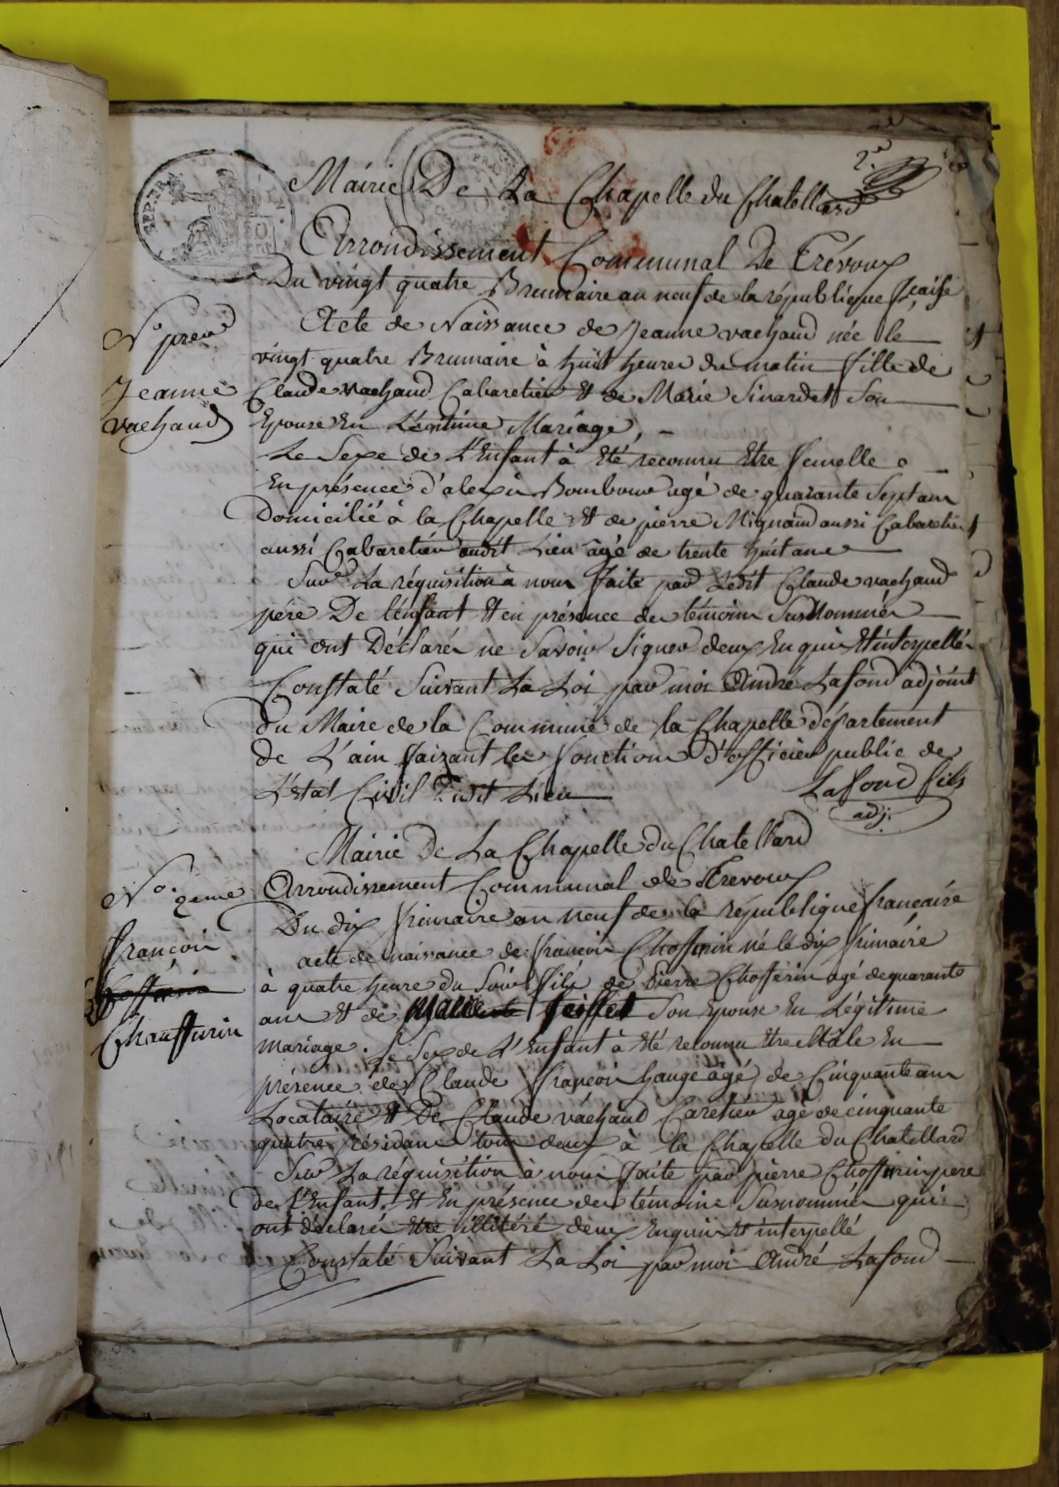 2.e
Mairie De La Chapelle du Chatellard
Arrondissement Communal De Trévoux
Du vingt quatre Brumaire an neuf de la république fçaise
N.o prem
Acte de Naissance de Jeanne vachaud née le
vingt quatre Brumaire à huit heures du matin fille de
Jeanne
Claude vachaud Cabaretier & de Marie Sinardet Son
vachaud
Epouse En Légitime Mariage,
Le Sexe de L'Enfant à Eté reconnu Etre femelle
En présence d'alexis agé de quarante Sept ans
Domicilié à la Chapelle & de pierre Mignaud aussi Cabaretier
aussi Cabaretier audit Lieu âgé de trente huit ans
Sur La réquisition à nous faite par Ledit Claude vachaud
père De l'enfant & en présence des témoins Susnommés
qui ont Déclarés ne Savoir Signer deux Enquis & interpellés
Constaté Suivant La Loi par moi André Lafond adjoint
du Maire de la Commune de la Chapelle département
de L'ain faizant les fonctions d'officier public de
L'état Civil dudit Lieu
Lafond fils
adj.
Mairie De La Chapelle Du Chatellard
N.o 2eme
Arrondissement Communal de Trevoux
Du dix frimaire an neuf de la république françaire
françois
acte de naissance de françois Choffurin né le dix frimaire
à quatre heure du Soir fils de Pierre Choffurin agé de quarante
Choffurin
ans & de Marie feillet Son Epouse En Légitime
Chauffurin
mariage. Le Sexe de L'Enfant à Eté reconnu Etre Male En
présence de Claude françois hauge âgé de Cinquante ans
Locataire & De Claude vachaud Caretier agé de cinquante
quatre résidans tous deux à la Chapelle Du Chatellard
Sur La réquisition à nous faite par pierre Choffurin père
de l'Enfant & En présence des témoins Susnommés qui
ont déclarés Etre illitéré deux Enquis & interpellé
Constaté Suivant La Loi par moi André Lafond